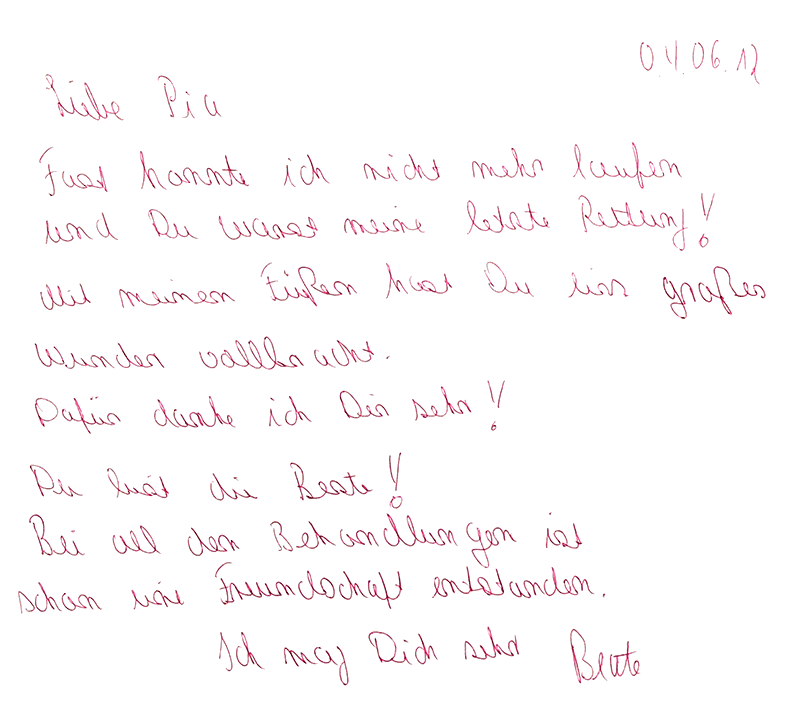 04.06.12
Liebe Pia
Fast konnte ich nicht mehr laufen
und Du warst meine letzte Rettung!
Mit meinen Füßen hast Du ein großes
Wunder vollbracht.
Dafür danke ich Dir sehr!
Du bist die Beste!
Bei all den Behandlungen ist
schon eine Freundschaft entstanden.
Ich mag Dich sehr Beate